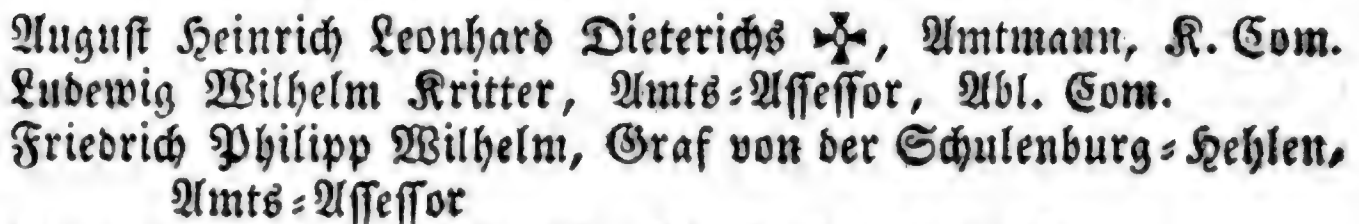 August Heinrich Leonhard Dieterichs ✠, Amtmann, K. Com.
Ludewig Wilhelm Kritter, Amts=Assessor, Abl. Com.
Friedrich Philipp Wilhelm, Graf von der Schulenburg=Hehlen,
Amts=Assessor